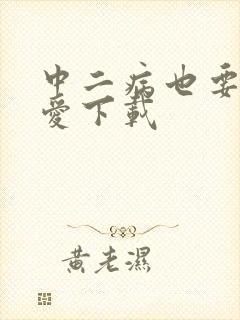 中二病也要
愛下載
黃老濕